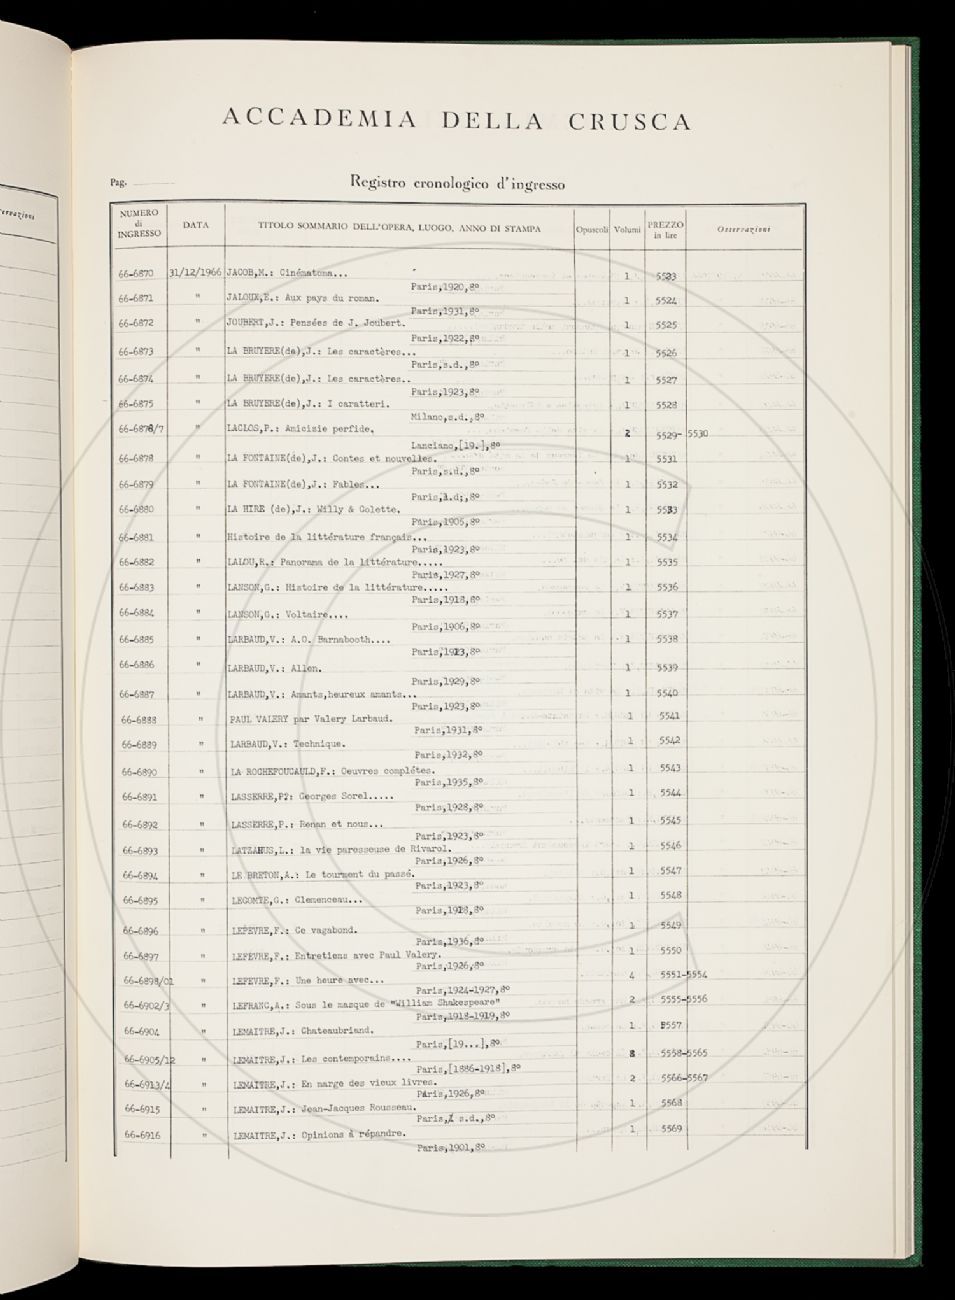 ervazioni
ACCADEMIA DELLA CRUSCA
Pag.
Registro cronologico d'ingresso
NUMERO di INGRESSO DATA TITOLO SOMMARIO DELL'OPERA, LUOGO, ANNO DI STAMPA Opuscoli Volumi PREZZO in lire Osservazioni
66-6870 31/12/1966 JACOB,M.: Cinématoma... 1 5523
Paris,1920,8º
66-6871 " JALOUX,E.: Aux pays du roman. 1 5524
Paris,1931,8º
66-6872 " JOUBERT,J.: Pensées de J. Joubert. 1 5525
Paris,1922,8º
66-6873 " LA BRUYERE(de),J.: Les caractères... 1 5526
Paris,s.d.,8º
66-6874 " LA BRUYERE(de),J.: Les caractères.. 1 5527
Paris,1923,8º
66-6875 " LA BRUYERE(de),J.: I caratteri. 1 5528
Milano,s.d.,8º
66-6876/7 " LACLOS,P.: Amicizie perfide. 2 5529-5530
Lanciano,[19.],8º
66-6878 " LA FONTAINE(de),J.: Contes et nouvelles. 1 5531
Paris,s.d.,8º
66-6879 " LA FONTAINE(de),J.: Fables... 1 5532
Paris,s.d.,8º
66-6880 " LA HIRE (de),J.: Willy & Colette. 1 5533
Paris,1905,8º
66-6881 " Histoire de la littérature français... 1 5534
Paris,1923,8º
66-6882 " LALOU,R.: Panorama de la littérature..... 1 5535
Paris,1927,8º
66-6883 " LANSON,G.: Histoire de la littérature..... 1 5536
Paris,1918,8º
66-6884 " LANSON,G.: Voltaire.... 1 5537
Paris,1906,8º
66-6885 " LARBAUD,V.: A.O. Barnabooth.... 1 5538
Paris,1923,8º
66-6886 " LARBAUD,V.: Allen. 1 5539
Paris,1929,8º
66-6887 " LARBAUD,V.: Amants,heureux amants... 1 5540
Paris,1923,8º
66-6888 " PAUL VALERY par Valery Larbaud. 1 5541
Paris,1931,8º
66-6889 " LARBAUD,V.: Technique. 1 5542
Paris,1932,8º
66-6890 " LA ROCHEFOUCAULD,F.: Oeuvres complétes. 1 5543
Paris,1935,8º
66-6891 " LASSERRE,P?: Georges Sorel..... 1 5544
Paris,1928,8º
66-6892 " LASSERRE,P.: Renan et nous... 1 5545
Paris,1923,8º
66-6893 " LATZARUS,L.: la vie paresseuse de Rivarol. 1 5546
Paris,1926,8º
66-6894 " LE BRETON,A.: Le tourment du passé. 1 5547
Paris,1923,8º
66-6895 " LECOMTE,G.: Clemenceau... 1 5548
Paris,1918,8º
66-6896 " LEFEVRE,F.: Ce vagabond. 1 5549
Paris,1936,8º
66-6897 " LEFEVRE,F.: Entretiens avec Paul Valery. 1 5550
Paris,1926,8º
66-6898/01 " LEFEVRE,F.: Une heure avec... 4 5551-5554
Paris,1924-1927,8º
66-6902/3 " LEFRANC,A.: Sous le masque de "William Shakespeare" 2 5555-5556
Paris,1918-1919,8º
66-6904 " LEMAITRE,J.: Chateaubriand. 1 5557
Paris,[19...],8º
66-6905/12 " LEMAITRE,J.: Les contemporains.... 8 5558-5565
Paris,[1886-1918],8º
66-6913/4 " LEMAITRE,J.: En marge des vieux livres. 2 5566-5567
Paris,1926,8º
66-6915 " LEMAITRE,J.: Jean-Jacques Rousseau. 1 5568
Paris, s.d.,8º
66-6916 " LEMAITRE,J.: Opinions à répandre. 1 5569
Paris,1901,8º